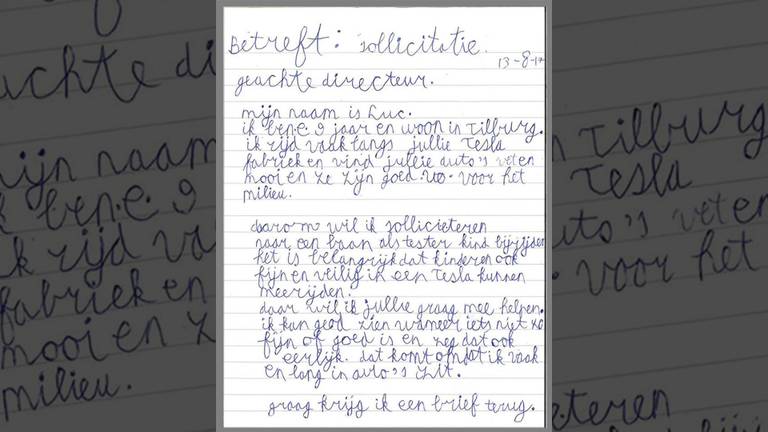 Betreft: sollicitatie.
13-8-17
geachte directeur.
mijn naam is Luc.
ik ben.e 9 jaar en woon in Tilburg.
ik rijd vaak langs jullie Tesla
fabriek en vind jullie auto's vet en
mooi en ze zijn goed voor het
milieu.
daarom wil ik sollicieteren
naar een baan als tester kind bijrijden
het is belangrijk dat kinderen ook
fijn en veilig in een Tesla kunnen
meerijden.
daar wil ik jullie graag mee helpen.
ik kan goed zien wanneer iets niet zo
fijn of goed is en zeg dat ook
eerlijk. dat komt omdat ik vaak
en lang in auto's zit.
graag krijg ik een brief terug.